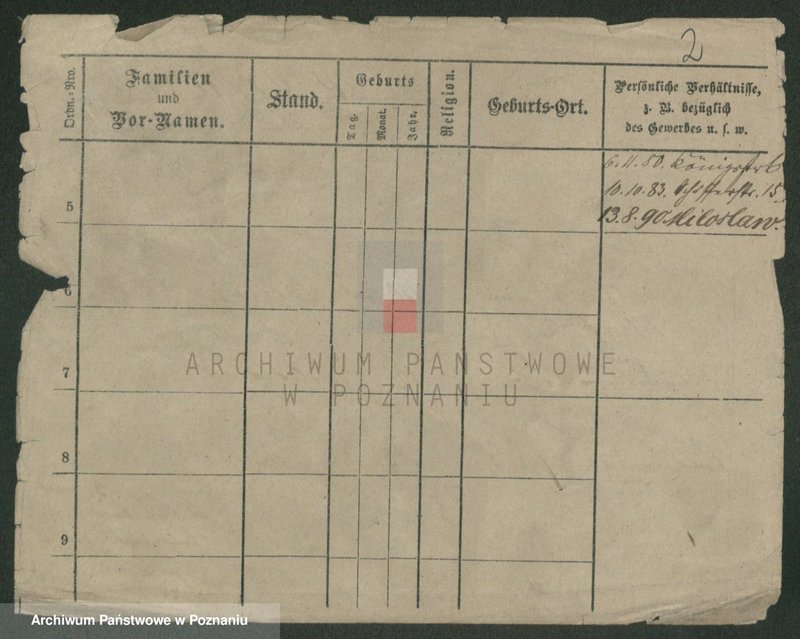 2
Ordn.-Nro.
Familien
und
Vor-Namen.
Stand.
Geburts
Tag.
Monat.
Jahr.
Religion.
Geburts-Ort.
Persönliche Verhältnisse,
z. B. bezüglich
des Gewerbes u. s. w.
6. 11. 80.
10. 10. 83. 15
5
13. 8. 90 Miloslaw.
6
7
8
9
ARCHIWUM PAŃSTWOWE
W POZNANIU
Archiwum Państwowe w Poznaniu